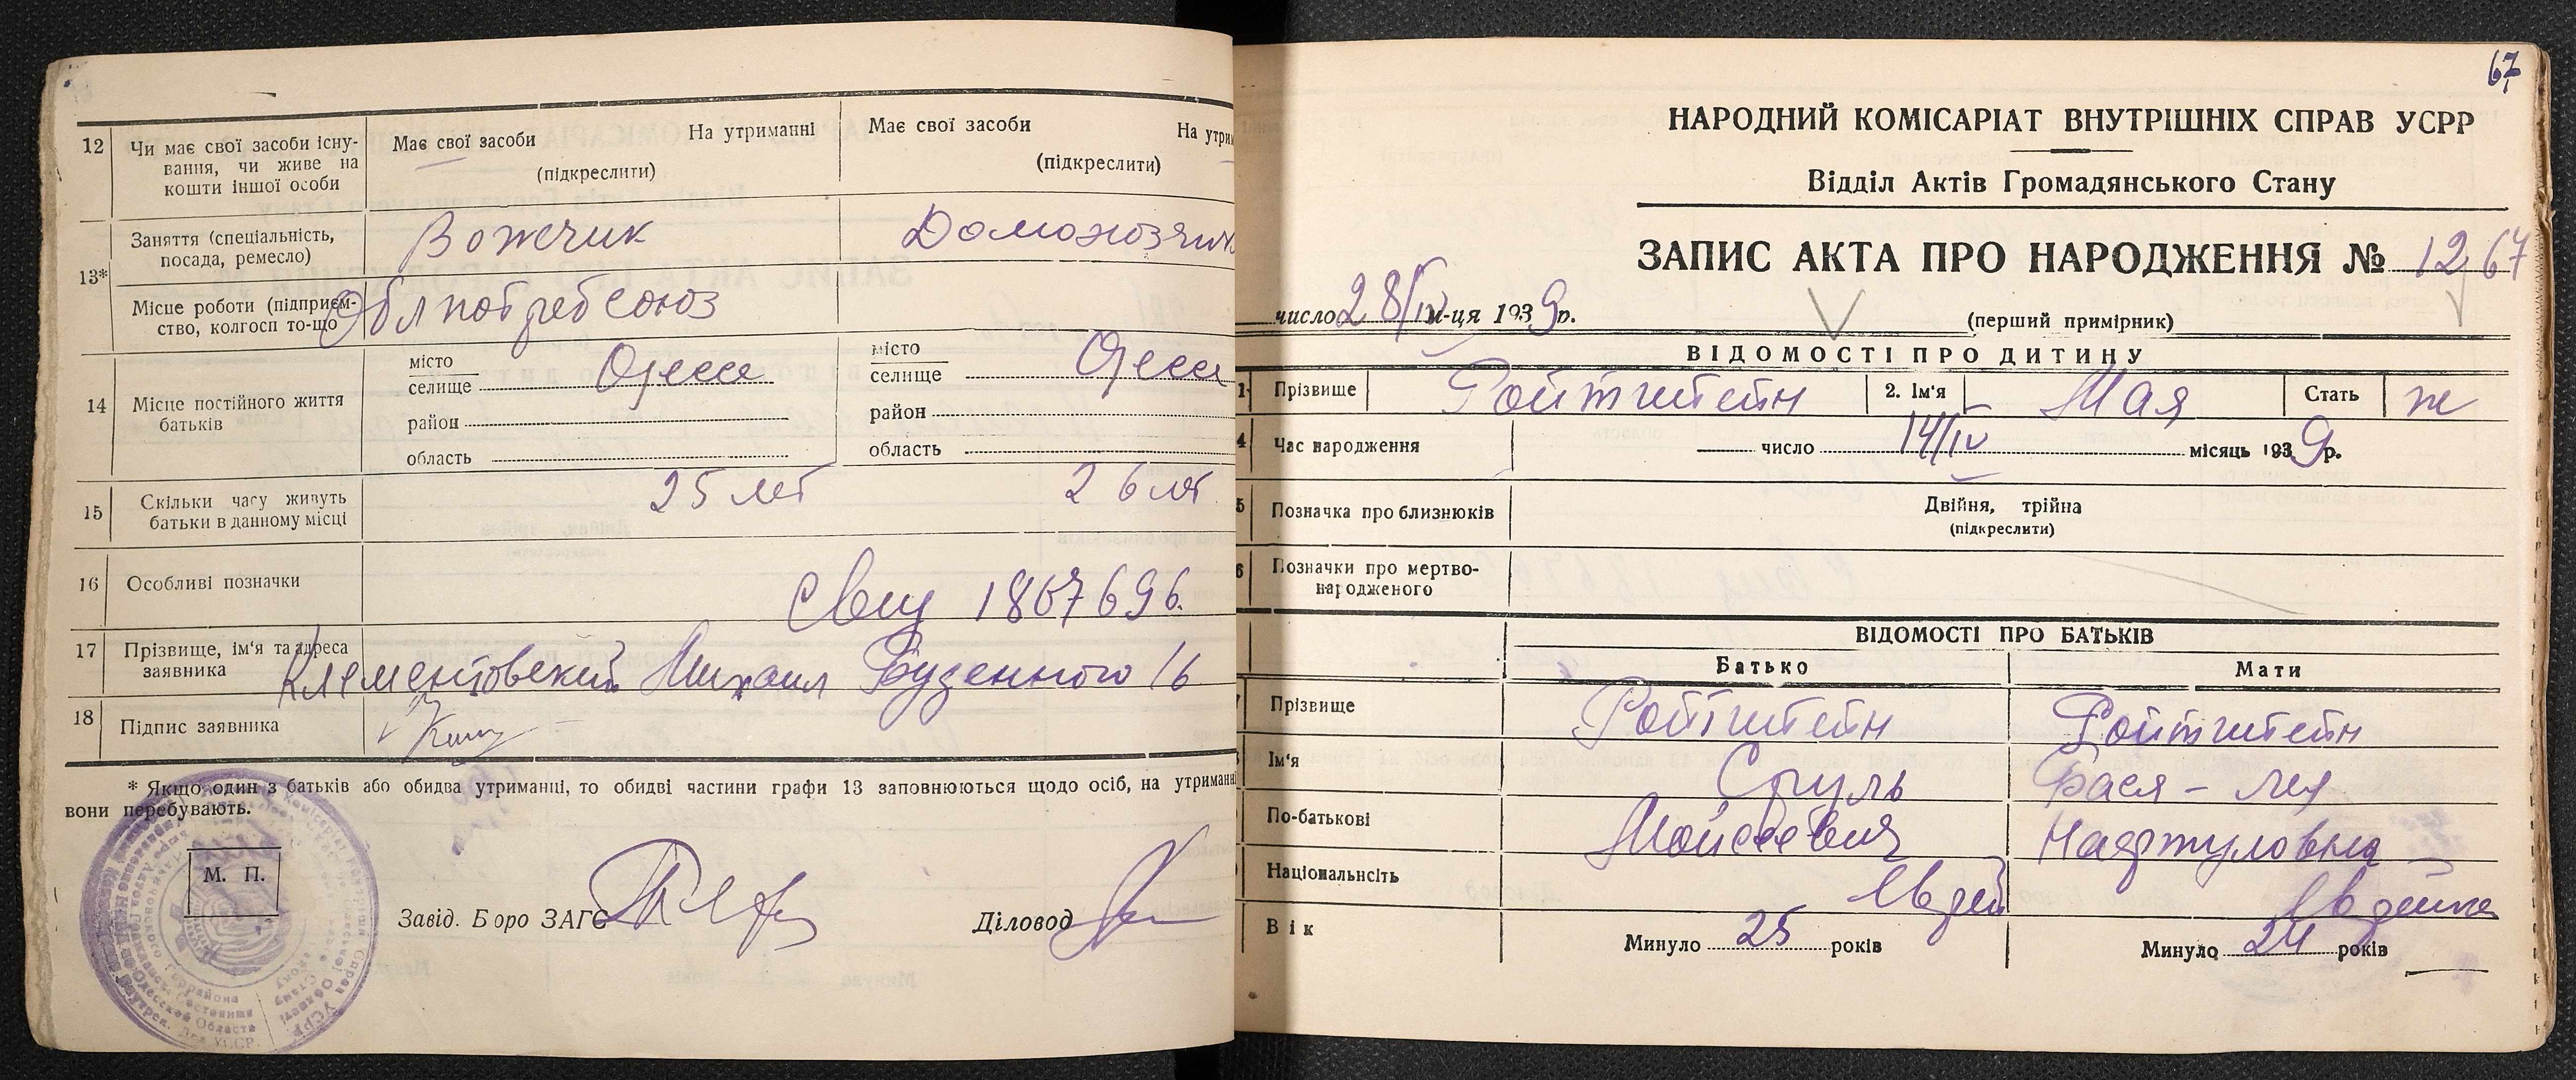 12 Чи має свої засоби існу-
вання, чи живе на
кошти іншої особи
Має свої засоби На утриманні
(підкреслити)
Має свої засоби На утрим
(підкреслити)
13*
Заняття (спеціальність,
посада, ремесло)
Возчик Домохозяйк
Місце роботи (підприєм-
ство, колгосп то-що
Облпотребсоюз
14 Місце постійного життя
батьків
місто
селище Одесса
район
область
місто
селище Одесс
район
область
15 Скільки часу живуть
батьки в данному місці
25 лет 26 лет
16 Особливі позначки
1867696.
17 Прізвище, ім'я та адреса
заявника
Клементовский Михаил Буденного 16
18 Підпис заявника
* Якщо один з батьків або обидва утриманці, то обидві частини графи 13 заповнюються щодо осіб, на утриманні
вони перебувають.
М. П.
Завід. Боро ЗАГС
Діловод
67
НАРОДНИЙ КОМІСАРІАТ ВНУТРІШНІХ СПРАВ УСРР
Відділ Актів Громадянського Стану
ЗАПИС АКТА ПРО НАРОДЖЕННЯ № 1267
число 28/IV м-ця 1939 р.
(перший примірник)
ВІДОМОСТІ ПРО ДИТИНУ
1 Прізвище Ройтштейн 2. Ім'я Мая Стать ж
4 Час народження число 14/IV місяць 1939 р.
5 Позначка про близнюків
Двійня, трійна
(підкреслити)
6 Позначки про мертво-
народженого
ВІДОМОСТІ ПРО БАТЬКІВ
Батько Мати
Прізвище Ройтштейн Ройтштейн
Ім'я Сруль Бася - Лея
По-батькові Мойсеевич Нафтуловна
Національнсіть Еврей Еврейка
Вік
Минуло 25 років Минуло 24 років